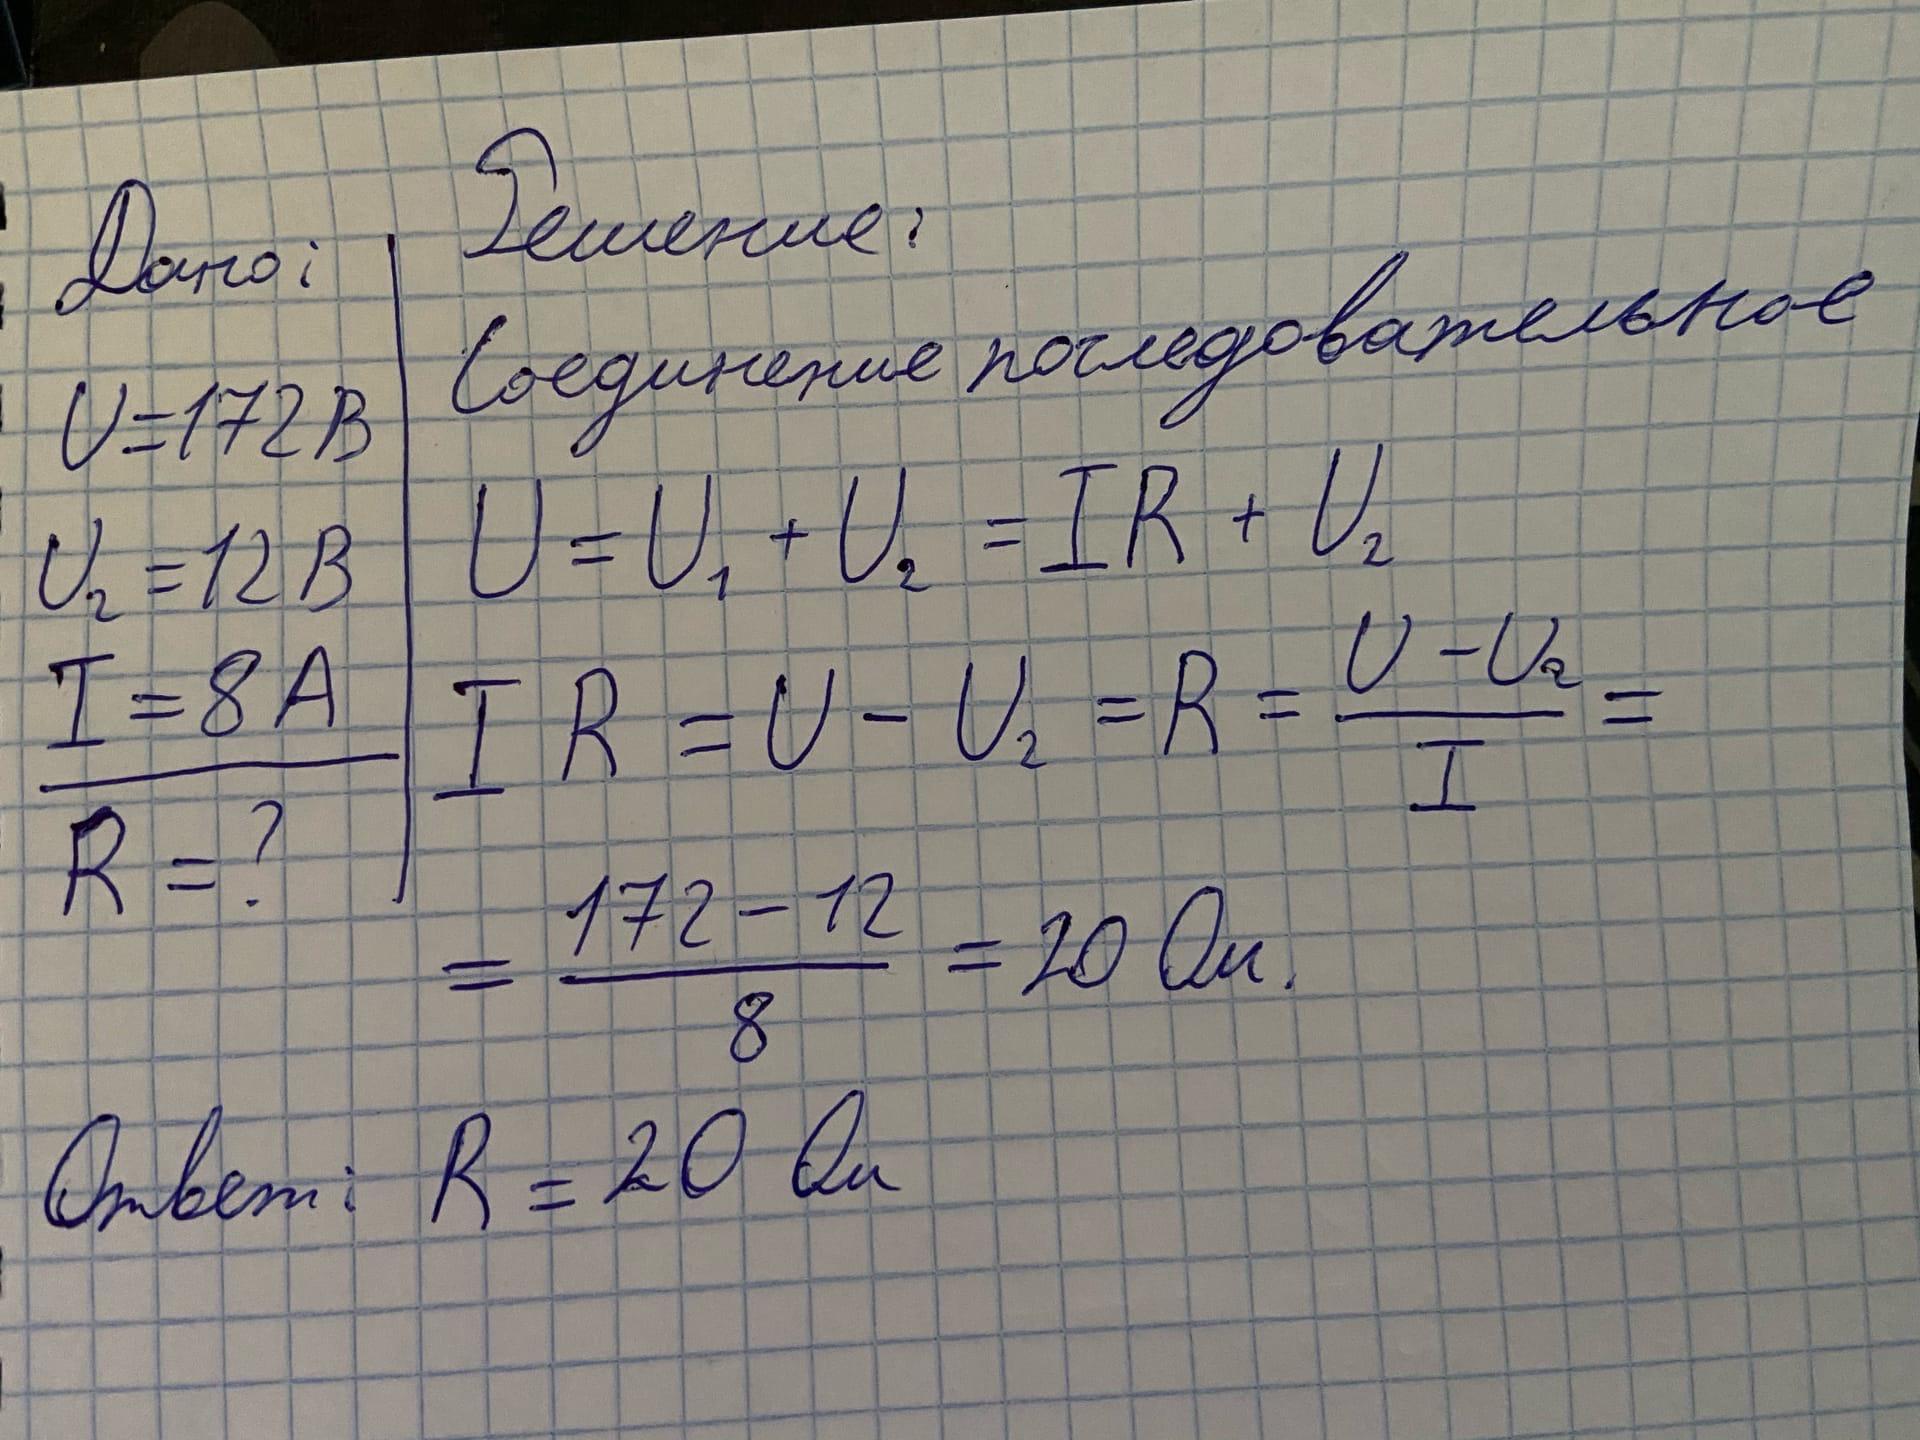 Дано:
U=172В
U₂=12В
I=8А
R=?
Решение:
Соединение последовательное
U=U₁+U₂=IR+U₂
IR=U-U₂=R=\frac{U-U₂}{I}=
=\frac{172-12}{8}=20 Ом.
Ответ: R=20 Ом